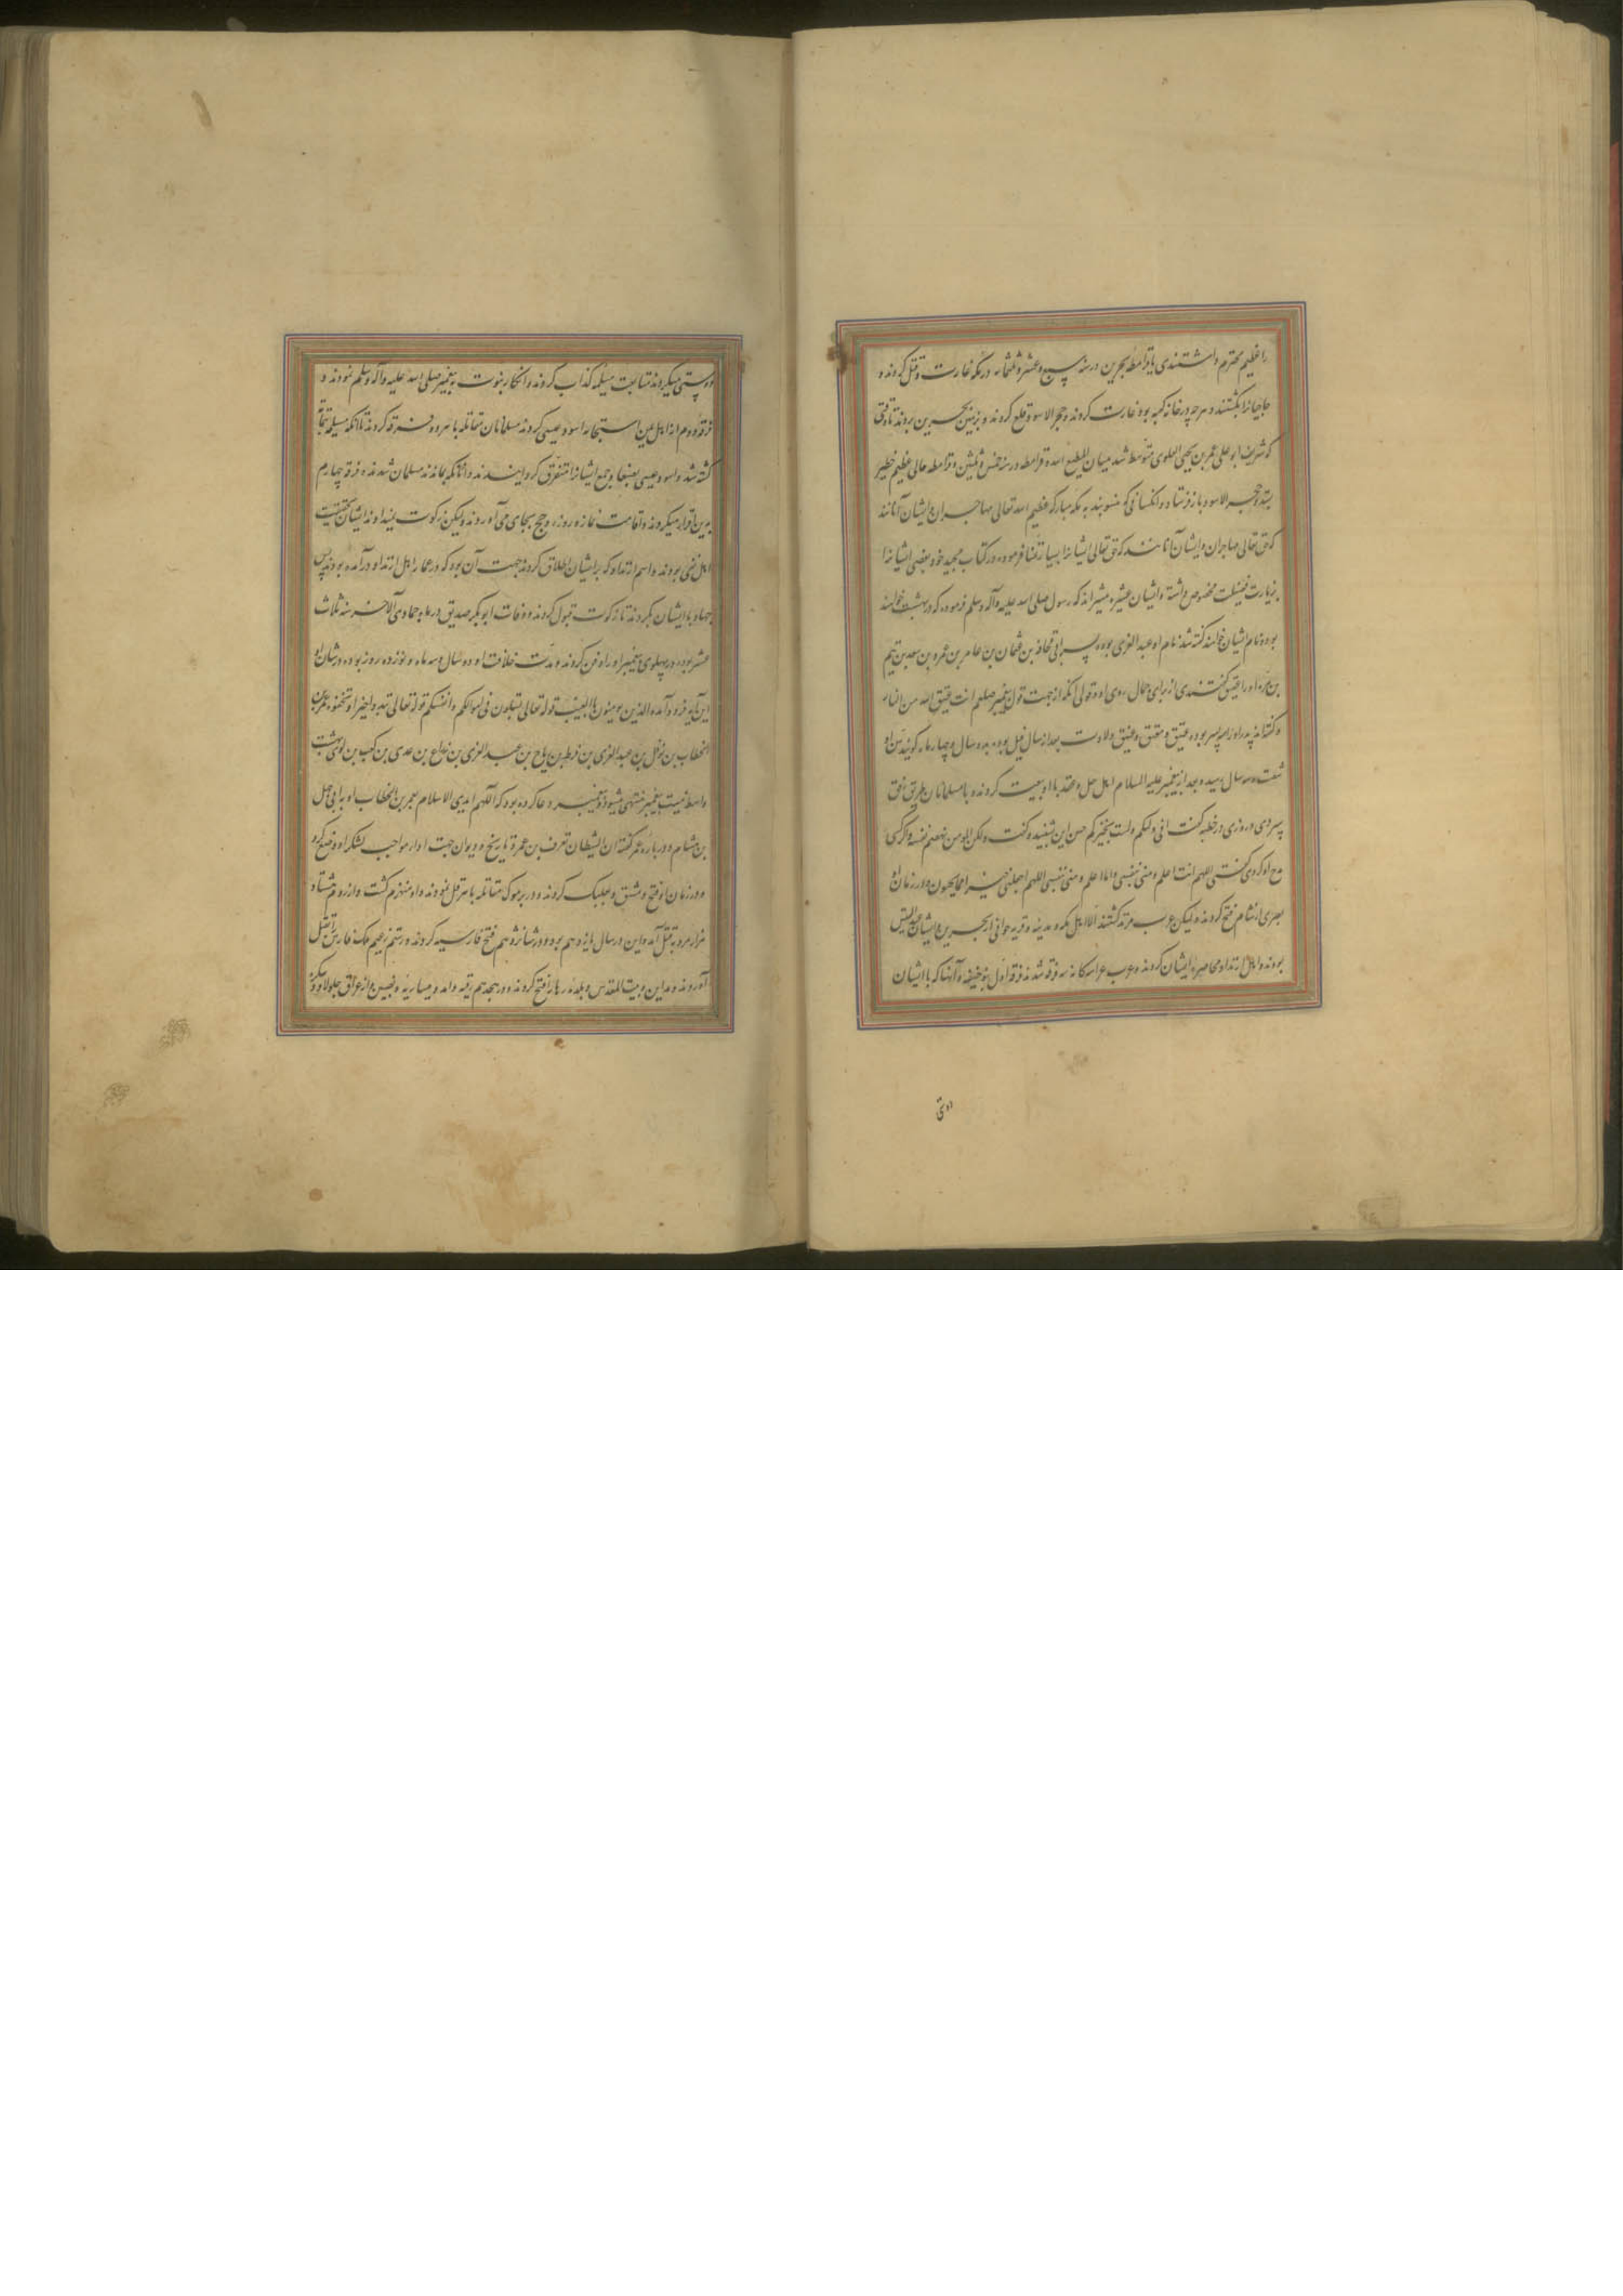 را عظیم محترم داشتندی تا قرامطه بحرین در سنه سبع و عشر و ثلثمائه در مکه غارت و قتل کردند و
حاجیانرا بکشتند و هرچه در خانه کعبه بود غارت کردند و حجر الاسود قلع کردند و بزمین بحرین بردند تا وقتی
که شریف ابو علی عمر بن یحیی العلوی متوسط شد میان المطیع لله و قرامطه در سنه خمس و ثلثین و قرامطه مالی عظیم خطیر
بستد و حجر الاسود باز فرستاد و انکسانی که منسوبند به مکه مبارکه عظیم الله تعالی مهاجران و ایشان آنانند
که حق تعالی مهاجران و ایشان آنانند که حق تعالی ایشانرا بسیار ثنا فرموده در کتاب مجید خود بعضی ایشانرا
بزیارت فضیلت مخصوص داشته و ایشان عشره مبشره اند که رسول صلی الله علیه وآله وسلم فرموده که در بهشت خواهند
بود و نام ایشان خواهند گفته شد نام او عبد العزی بوده پسر ابی قحافه بن عثمان بن عامر بن عمرو بن سعد بن تیم
بن مره و او را عتیق گفتندی از برای جمال روی او و قولی آنکه از جهت قول پیغمبر صلعم انت عتیق الله من النار
و گفته اند پدر او را سه پسر بوده عتیق و معتق و عتیق ولادت بعد از سال فیل بوده بدو سال و چهار ماه گویند سن او
شصت و سه سال رسیده و بعد از پیغمبر علیه السلام اهل حل و عقد با او بیعت کردند و با مسلمانان بطریق رفق
بسر بردی و روزی در خطبه گفت انی ولیتکم ولست بخیرکم حسن این شنید و گفت ولکن المومن یهضم نفسه و اگر کسی
مدح او کردی گفتی اللهم انت اعلم و منی بنفسی وانا اعلم و منی بنفسی اللهم اجعلنی خیرا مما یحسبون و در زمان او
بصری از شام فتح کردند و لیکن عرب مرتد گشتند الا اهل مکه و مدینه و قریه جوانی از بحرین و ایشان عبد القیس
بودند و اهل ارتداد محاصره ایشان کردند و عرب عراسکانه سه فرقه شدند فرقه اول بنو حنیفه و آنها که با ایشان
دوستی
دوستی میکردند متابعت مسیلمه کذاب کردند و انکار بنوت پیغمبر صلی الله علیه وآله وسلم نمودند و
فرقه دوم از اهل یمن استجابه اسود عیسی کردند مسلمانان مقاتله با هر دو فرقه کردند تا آنکه مسیلمه بتمامه
کشته شد و اسود عیسی بصنعا و جمع ایشانرا متفرق گردانیدند و آنانکه بماندند مسلمان شدند و فرقه چهارم
بدین اقرار میکردند و اقامت نماز و روزه و حج بجای می آوردند و لیکن زکوت نمیدادند ایشان بحقیقت
اهل بغی بودند و اسم ارتداد که بر ایشان اطلاق کردند جهت آن بود که در غمار اهل ارتداد درآمده بودند پس
جهاد با ایشان بکردند تا زکوت قبول کردند و وفات ابو بکر صدیق در ماه جمادی الاخر سنه ثلاث
عشر بوده در پهلوی پیغمبر او را دفن کردند و مدت خلافت او دو سال و سه ماه و نوزده روز بوده و در شان او
این آیه فرود آمده الذین یومنون بالغیب قوله تعالی تبلون فی اموالکم وانفسکم قوله تعالی تبدوا خیرا او تخفوه عمر بن
الخطاب بن نوفل بن عبد العزی بن قرط بن ریاح بن عبد العزی بن رزاح بن عدی بن کعب بن لوی بهشت
واسطه نسبت پیغمبر منتهی میشود و پیغمبر دعا کرده بود که اللهم اید دین الاسلام بعمر بن الخطاب او به ابی جهل
بن هشام و در باره عمر گفته ان الشیطان تفرق بن عمر و تاریخ و دیوان جهت ادرار مواجب لشکر او وضع کرد
و در زمان او فتح دمشق و بعلبک کردند و در یرموک مقاتله با هرقل نمودند و او منهزم گشت و از روم هشتاد
هزار مرد بقتل آمد و این در سال پانزدهم بود و در شانزدهم فتح قادسیه کردند و رستم زعیم ملک فارس را بقتل
آوردند و مداین و بیت المقدس و بلده رها را فتح کردند و در هجدهم رقه و امد و میساریه و نصیبین و از عراق جلولا و تکریت